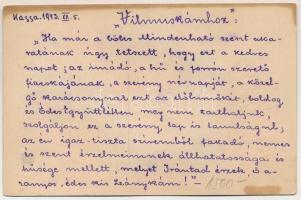 Kassa, 1912. XII. 5. „Vilmuskámhoz":
„Ha már a bölcs Mindenható szent aka-
ratának úgy tetszett, hogy ezt a kedves
napot; az imádó, a hű és forrón szerető
fiacskájának, a szerény névnapját, a köze-
lgő karácsonynal ezt az előünnökét, boldog
és édes együttlétben meg nem tarthatjuk,
szolgáljon ez a szerény lap is tanulságul;
az én igaz-tiszta szívemből fakadó, nemes
és szent érzelmeimnek állhatatossága és
hűsége mellett, melyet Irántad érzek, ó a-
ranyos, édes kis leánykám!"
1500-